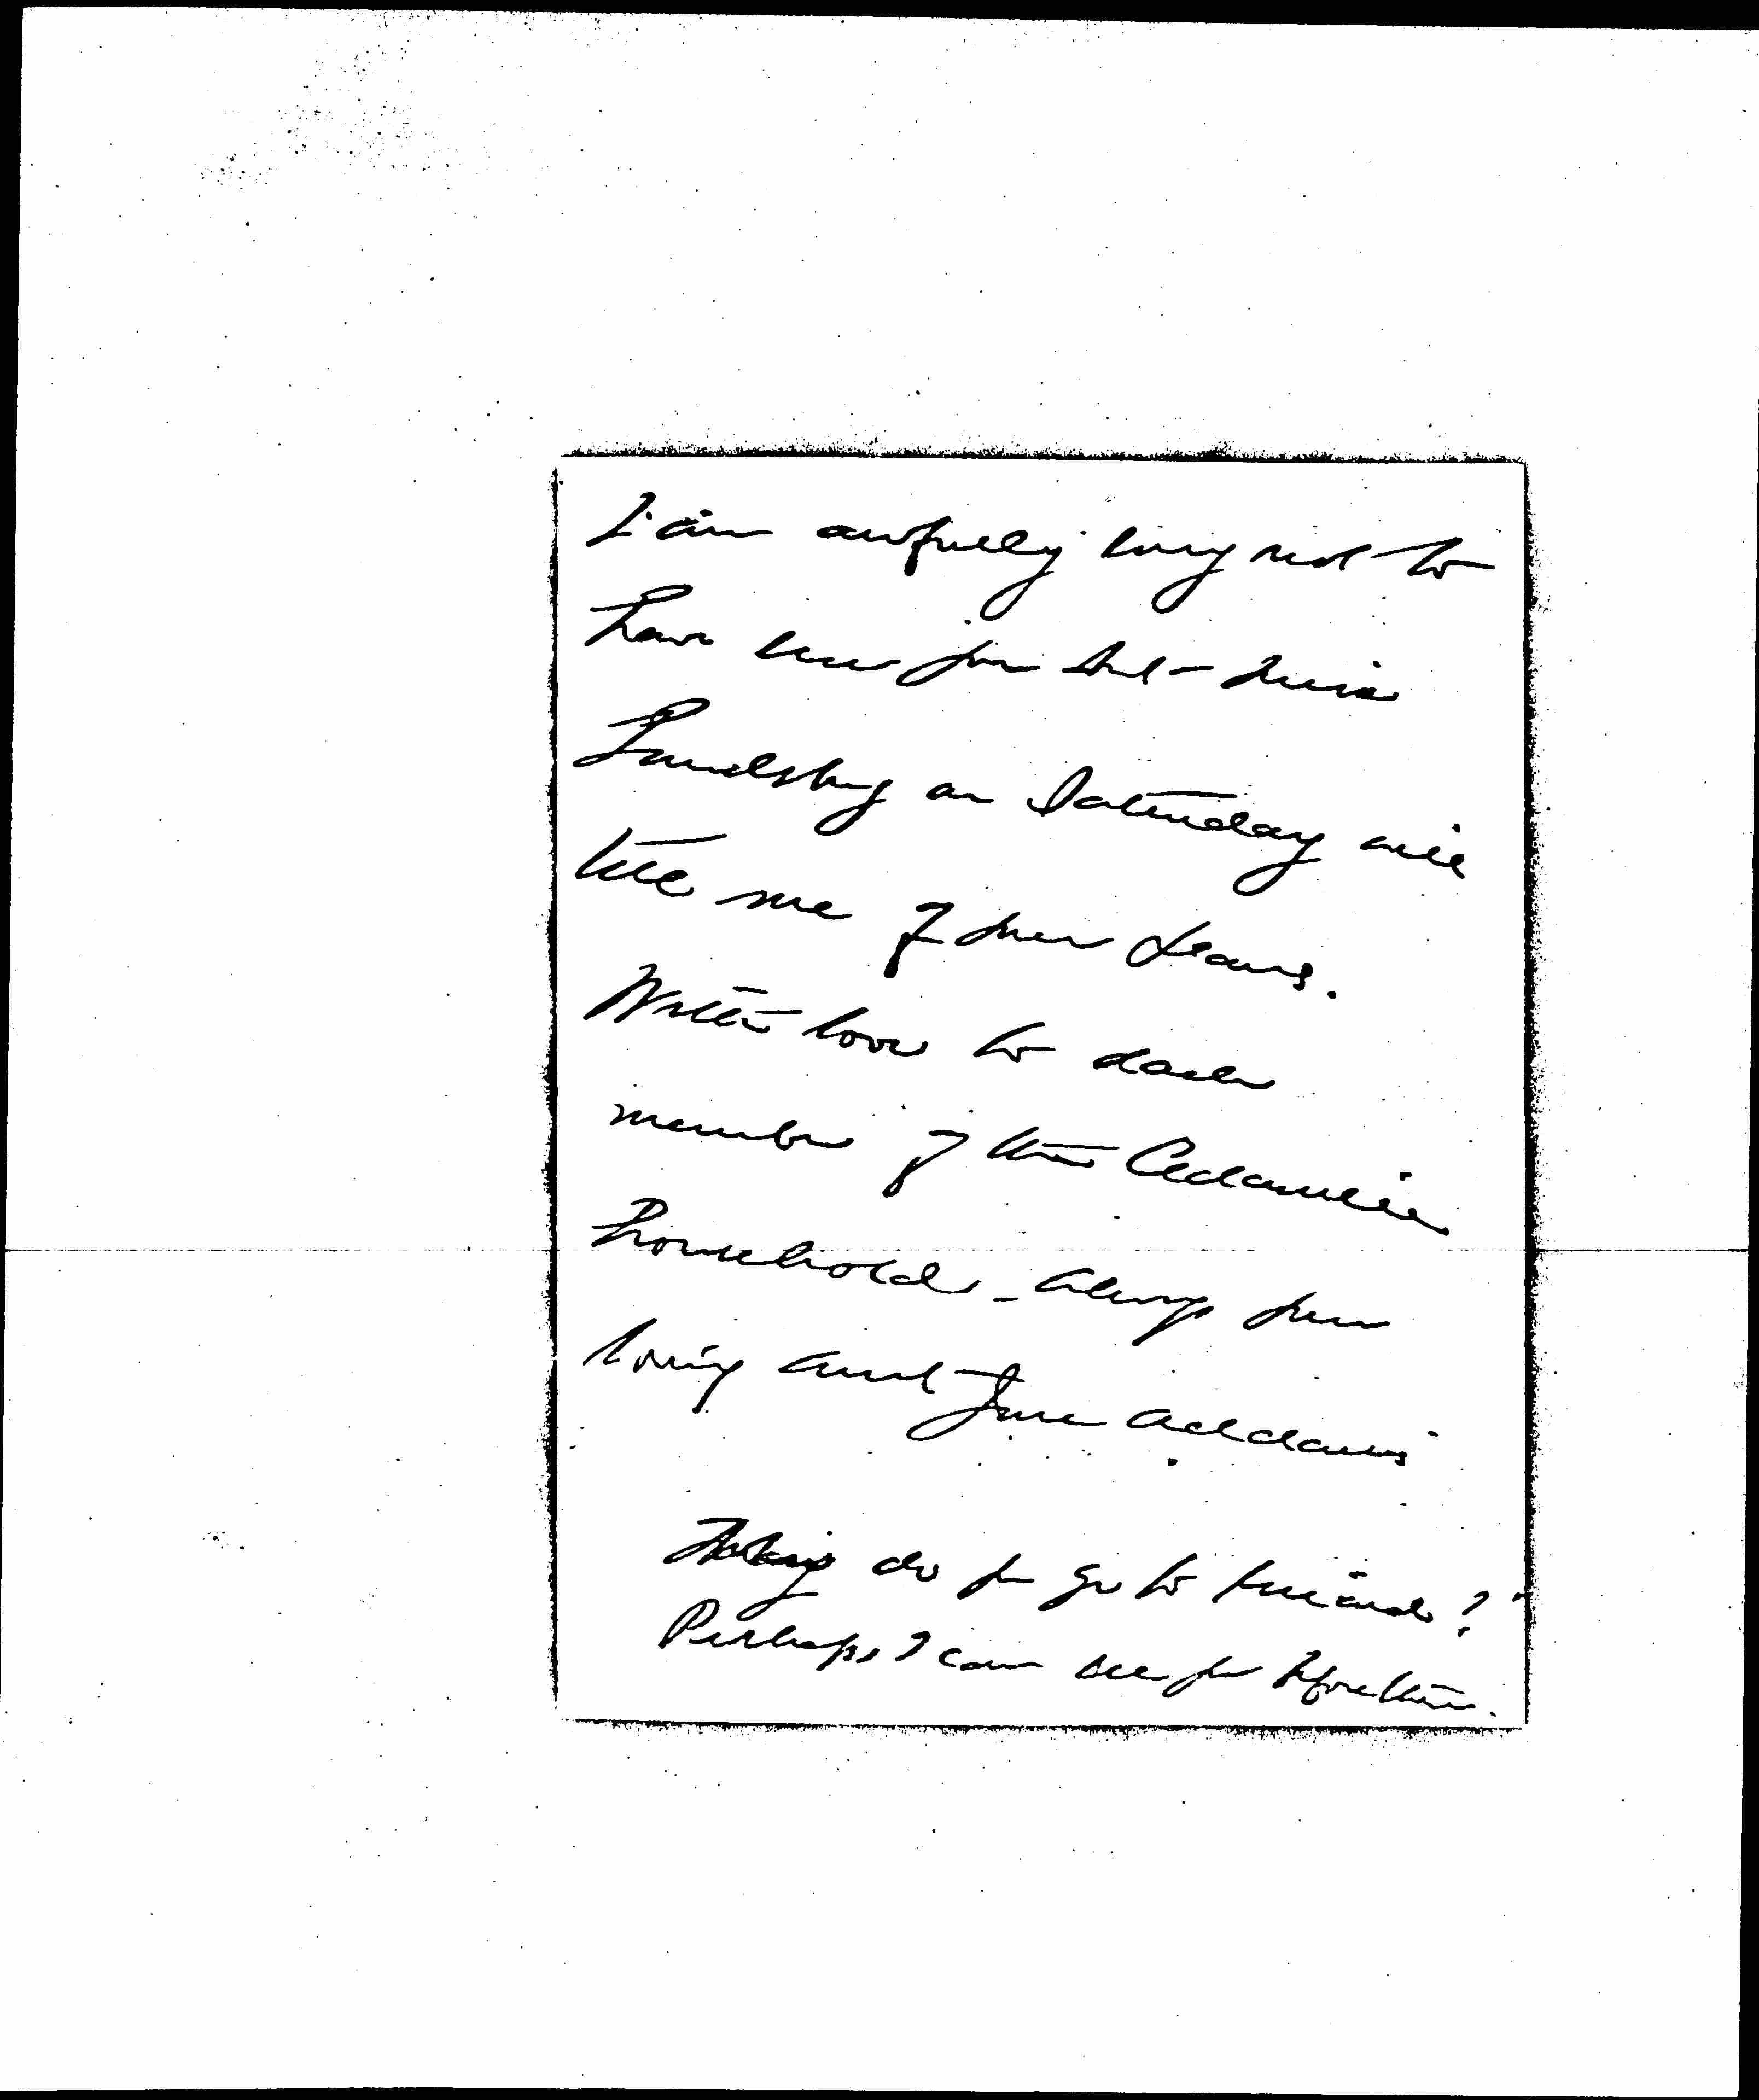 I am awfully sorry not to
have seen you but Miss
Landsberg on Saturday will
tell me of your plans.
With love to each
member of the
household – always your
loving aunt Jane Addams
do you go to
Perhaps I can see you before then.